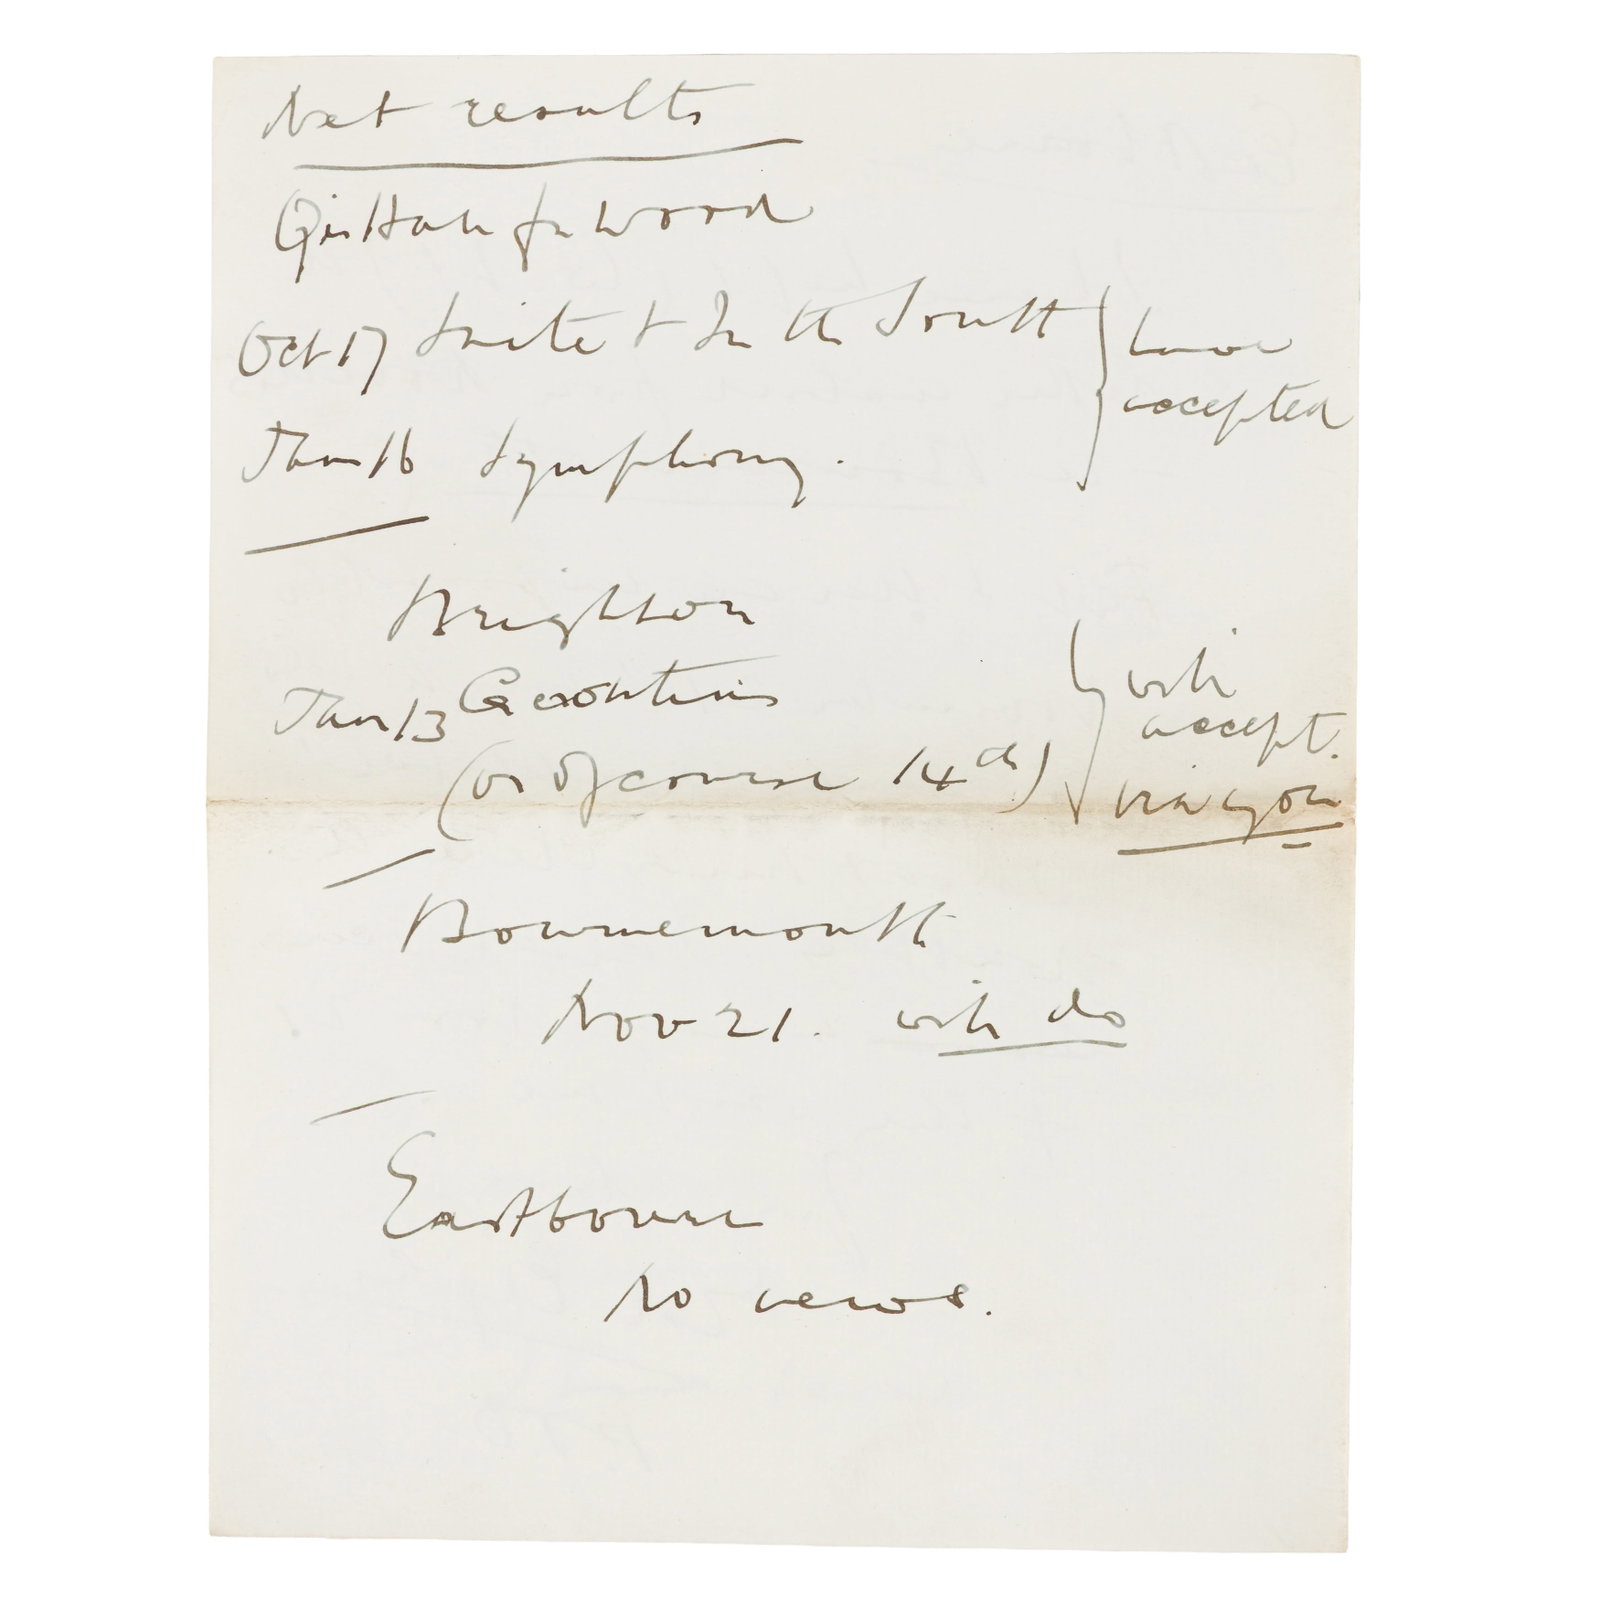 Net results
Qu's Hall for Wood
Oct 17 Suite & In the South } have
accepted
Jan 16 Symphony.
Brighton
Jan 13 Gerontius } will
accept.
(or of course 14th) via you
Bournemouth
Nov 21. will do
Eastbourne
No news.